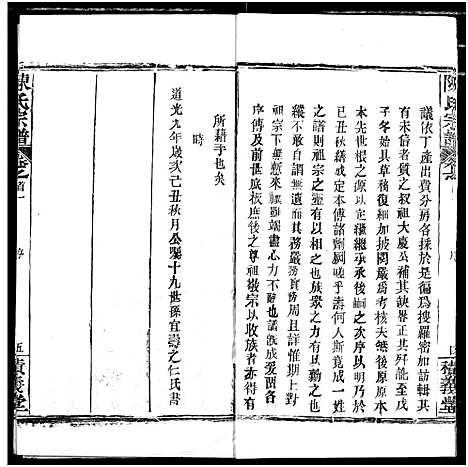 陳氏宗譜
卷之首
序
四
積義堂
議依丁產出費分房各採於是徧爲搜羅密加訪輯其
有未信者質之叔祖大慶公補其缺畧正其舛訛而
子冬始具草稿復細加披閱嚴爲考核夫然後原原本
本先世根之源以定長少相承承嗣之次序以明
已丑秋繕成定本傳諸劑劂嗟乎濤何人斯克成一姓
之譜則祖宗之靈有以相之也族衆之力有以勤之也
縱不敢自謂無遺而其務嚴務實務周且詳惟期上對
祖宗下示來茲竭盡心力不辭也諸
序傳及前世底板庶後之尊祖敬宗以收族者亦得有
所藉手也矣
時
道光九年歲次己丑秋月公暘十九世孫宜濤之仁氏書
陳氏宗譜
卷之首一
序
五
積義堂